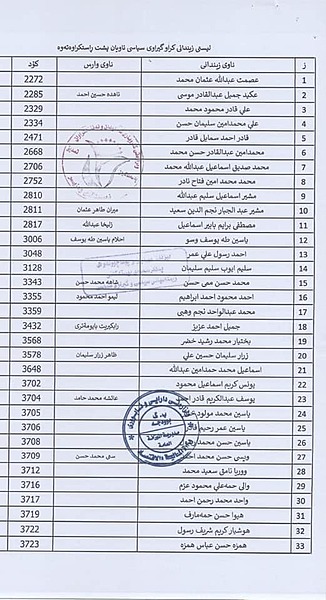 لیستی زیندانی کراو گیراوی سیاسی ناویان پشت راستکراوەتەوە
ز ناوی زیندانی ناوی وارس کۆد
1 عصمت عبدالله عثمان محمد 2272
2 عكيد جميل عبدالقادر موسى ناهده حسين احمد 2285
3 علي قادر محمود محمد 2329
4 علي محمدامين سليمان حسن 2334
5 قادر احمد سمايل قادر 2471
6 محمدامين عبدالقادر حسن محمد 2668
7 محمد صديق اسماعيل عبدالله محمد 2706
8 محمد محمد امين فتاح نادر 2752
9 مشير اسماعيل سليم عبدالله 2810
10 مشير عبد الجبار نجم الدين سعيد ميران طاهر عثمان 2811
11 مصطفى برايم بابير اسماعيل زليخا عبدالله 2817
12 ياسين طه يوسف وسو احلام ياسين طه يوسف 3006
13 احمد رسول علي عمر 3048
14 سليم ايوب سليم سليمان 3128
15 محمد حسن مى حسن شاهه محمد حسن 3343
16 احمد محمود احمد ابراهيم ليمو احمد محمود 3355
17 محمد عبدالواحد نجم وهبى 3359
18 جميل احمد عزيز 3432
19 بختيار محمد رشيد خضر 3568
20 زرار سليمان حسين علي طاهر زرار سليمان 3578
21 اسماعيل محمد حمدامين عبدالله 3648
22 يونس كريم اسماعيل محمود 3702
23 يوسف عبدالكريم قادر عائشه محمد حامد 3704
24 ياسين محمد مولود 3705
25 ياسين عمر رحيم 3706
26 ياسين حسن محمد 3708
27 ويسى حسن محمد سنى محمد حسن 3709
28 ووريا نامق سعيد محمد 3712
29 والى حمەعلي محمود عزم 3716
30 واحد محمد رحمن احمد 3717
31 هيوا حسن حمەمارف 3719
32 هوشيار كريم شريف رسول 3722
33 همزه حسن عباس همزه 3723